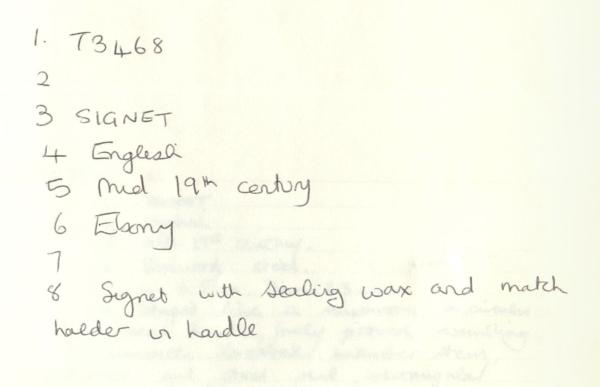 1. T3468
2
3 SIGNET
4 English
5 Mid 19th century
6 Ebony
7
8 Signet with sealing wax and match
holder in handle